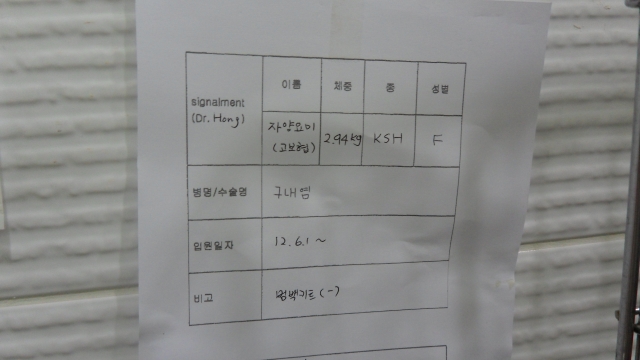 이름 체중 종 성별
signalment
(Dr. Hong)
자양요미 2.94kg KSH F
(고보협)
병명/수술명 구내염
입원일자 12.6.1 ~
비고 범백키트 (-)